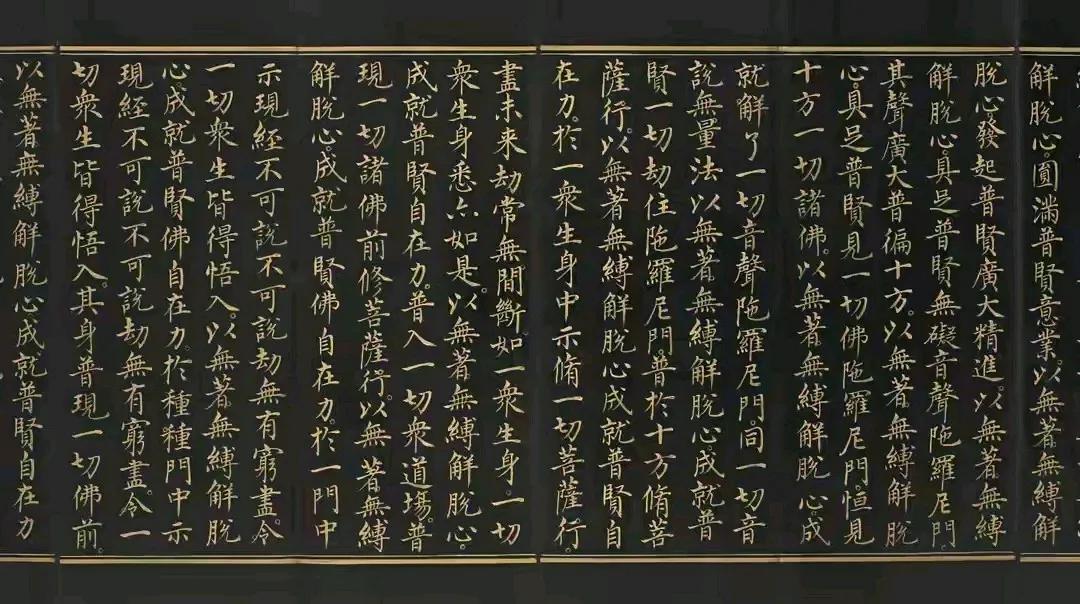 解脫心。圓滿普賢意業。以無著無縛解
脫心。發起普賢廣大精進。以無著無縛
解脫心具足普賢無礙音聲陁羅尼門。
其聲廣大普徧十方。以無著無縛解脫
心。具足普賢見一切佛陁羅尼門。恒見
十方一切諸佛。以無著無縛解脫心成
就解了一切音聲陁羅尼門。同一切音
說無量法以無著無縛解脫心成就普
賢一切劫住陁羅尼門。普於十方脩菩
薩行。以無著無縛解脫心成就普賢自
在力。於一衆生身中示脩一切菩薩行。
盡未来劫常無間斷。如一衆生身。一切
衆生身悉亦如是。以無著無縛解脫心。
成就普賢自在力。普入一切衆道場。普
現一切諸佛前修菩薩行。以無著無縛
解脫心。成就普賢佛自在力。於一門中
示現經不可說不可說劫無有窮盡。令
一切衆生皆得悟入。以無著無縛解脫
心。成就普賢佛自在力。於種種門中示
現經不可說不可說劫無有窮盡。令一
切衆生皆得悟入。其身普現一切佛前。
以無著無縛解脫心成就普賢自在力